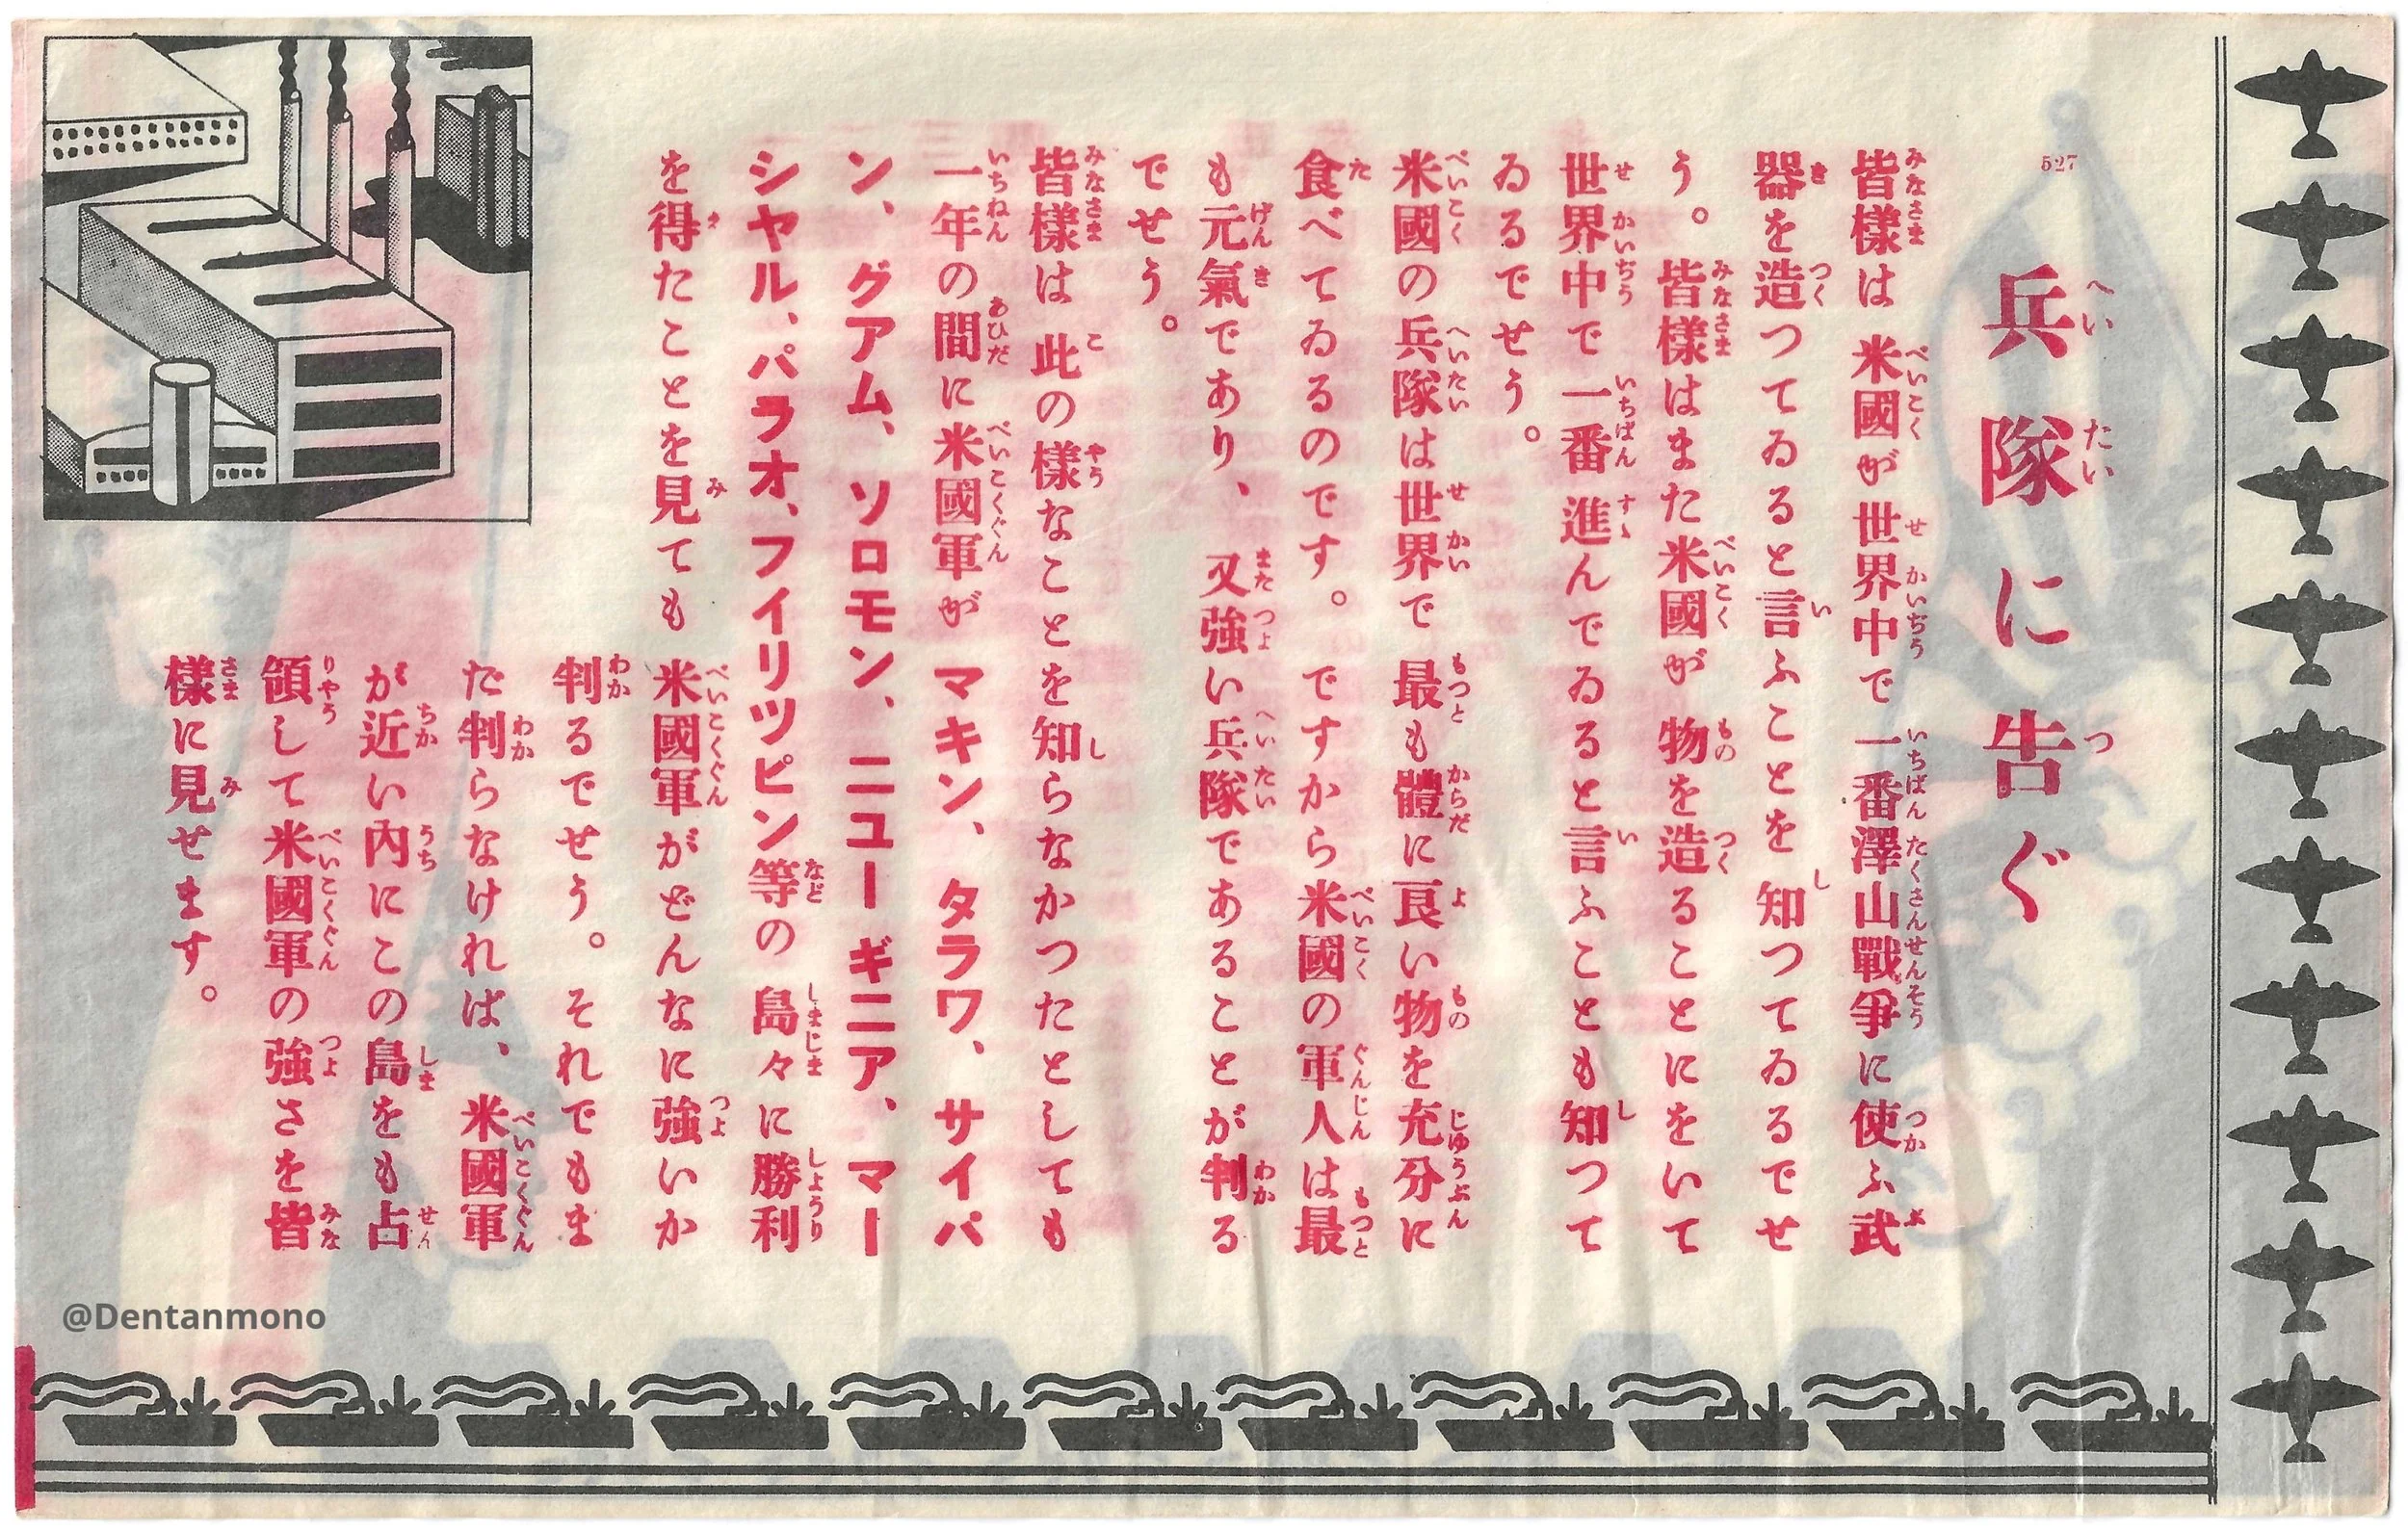 527
兵隊に告ぐ
皆様は 米國が世界中で 一番澤山戰爭に使ふ武
器を造つてゐると言ふことを 知つてゐるでせ
う。皆様はまた米國が 物を造ることにをいて
世界中で一番 進んでゐると言ふことも知つて
ゐるでせう。
米國の兵隊は世界で 最も體に良い物を充分に
食べてゐるのです。ですから米國の軍人は最
も元氣であり、又強い兵隊であることが判る
でせう。
皆様は 此の様なことを知らなかつたとしても
一年の間に米國軍が マキン、タラワ、サイパ
ン、グアム、ソロモン、ニユーギニア、マー
シヤル、パラオ、フイリツピン等の 島々に勝利
を得たことを見ても 米國軍がどんなに強いか
判るでせう。それでもま
だ判らなければ、米國軍
が近い內にこの島をも占
領して米國軍の強さを皆
様に見せます。
@Dentanmono